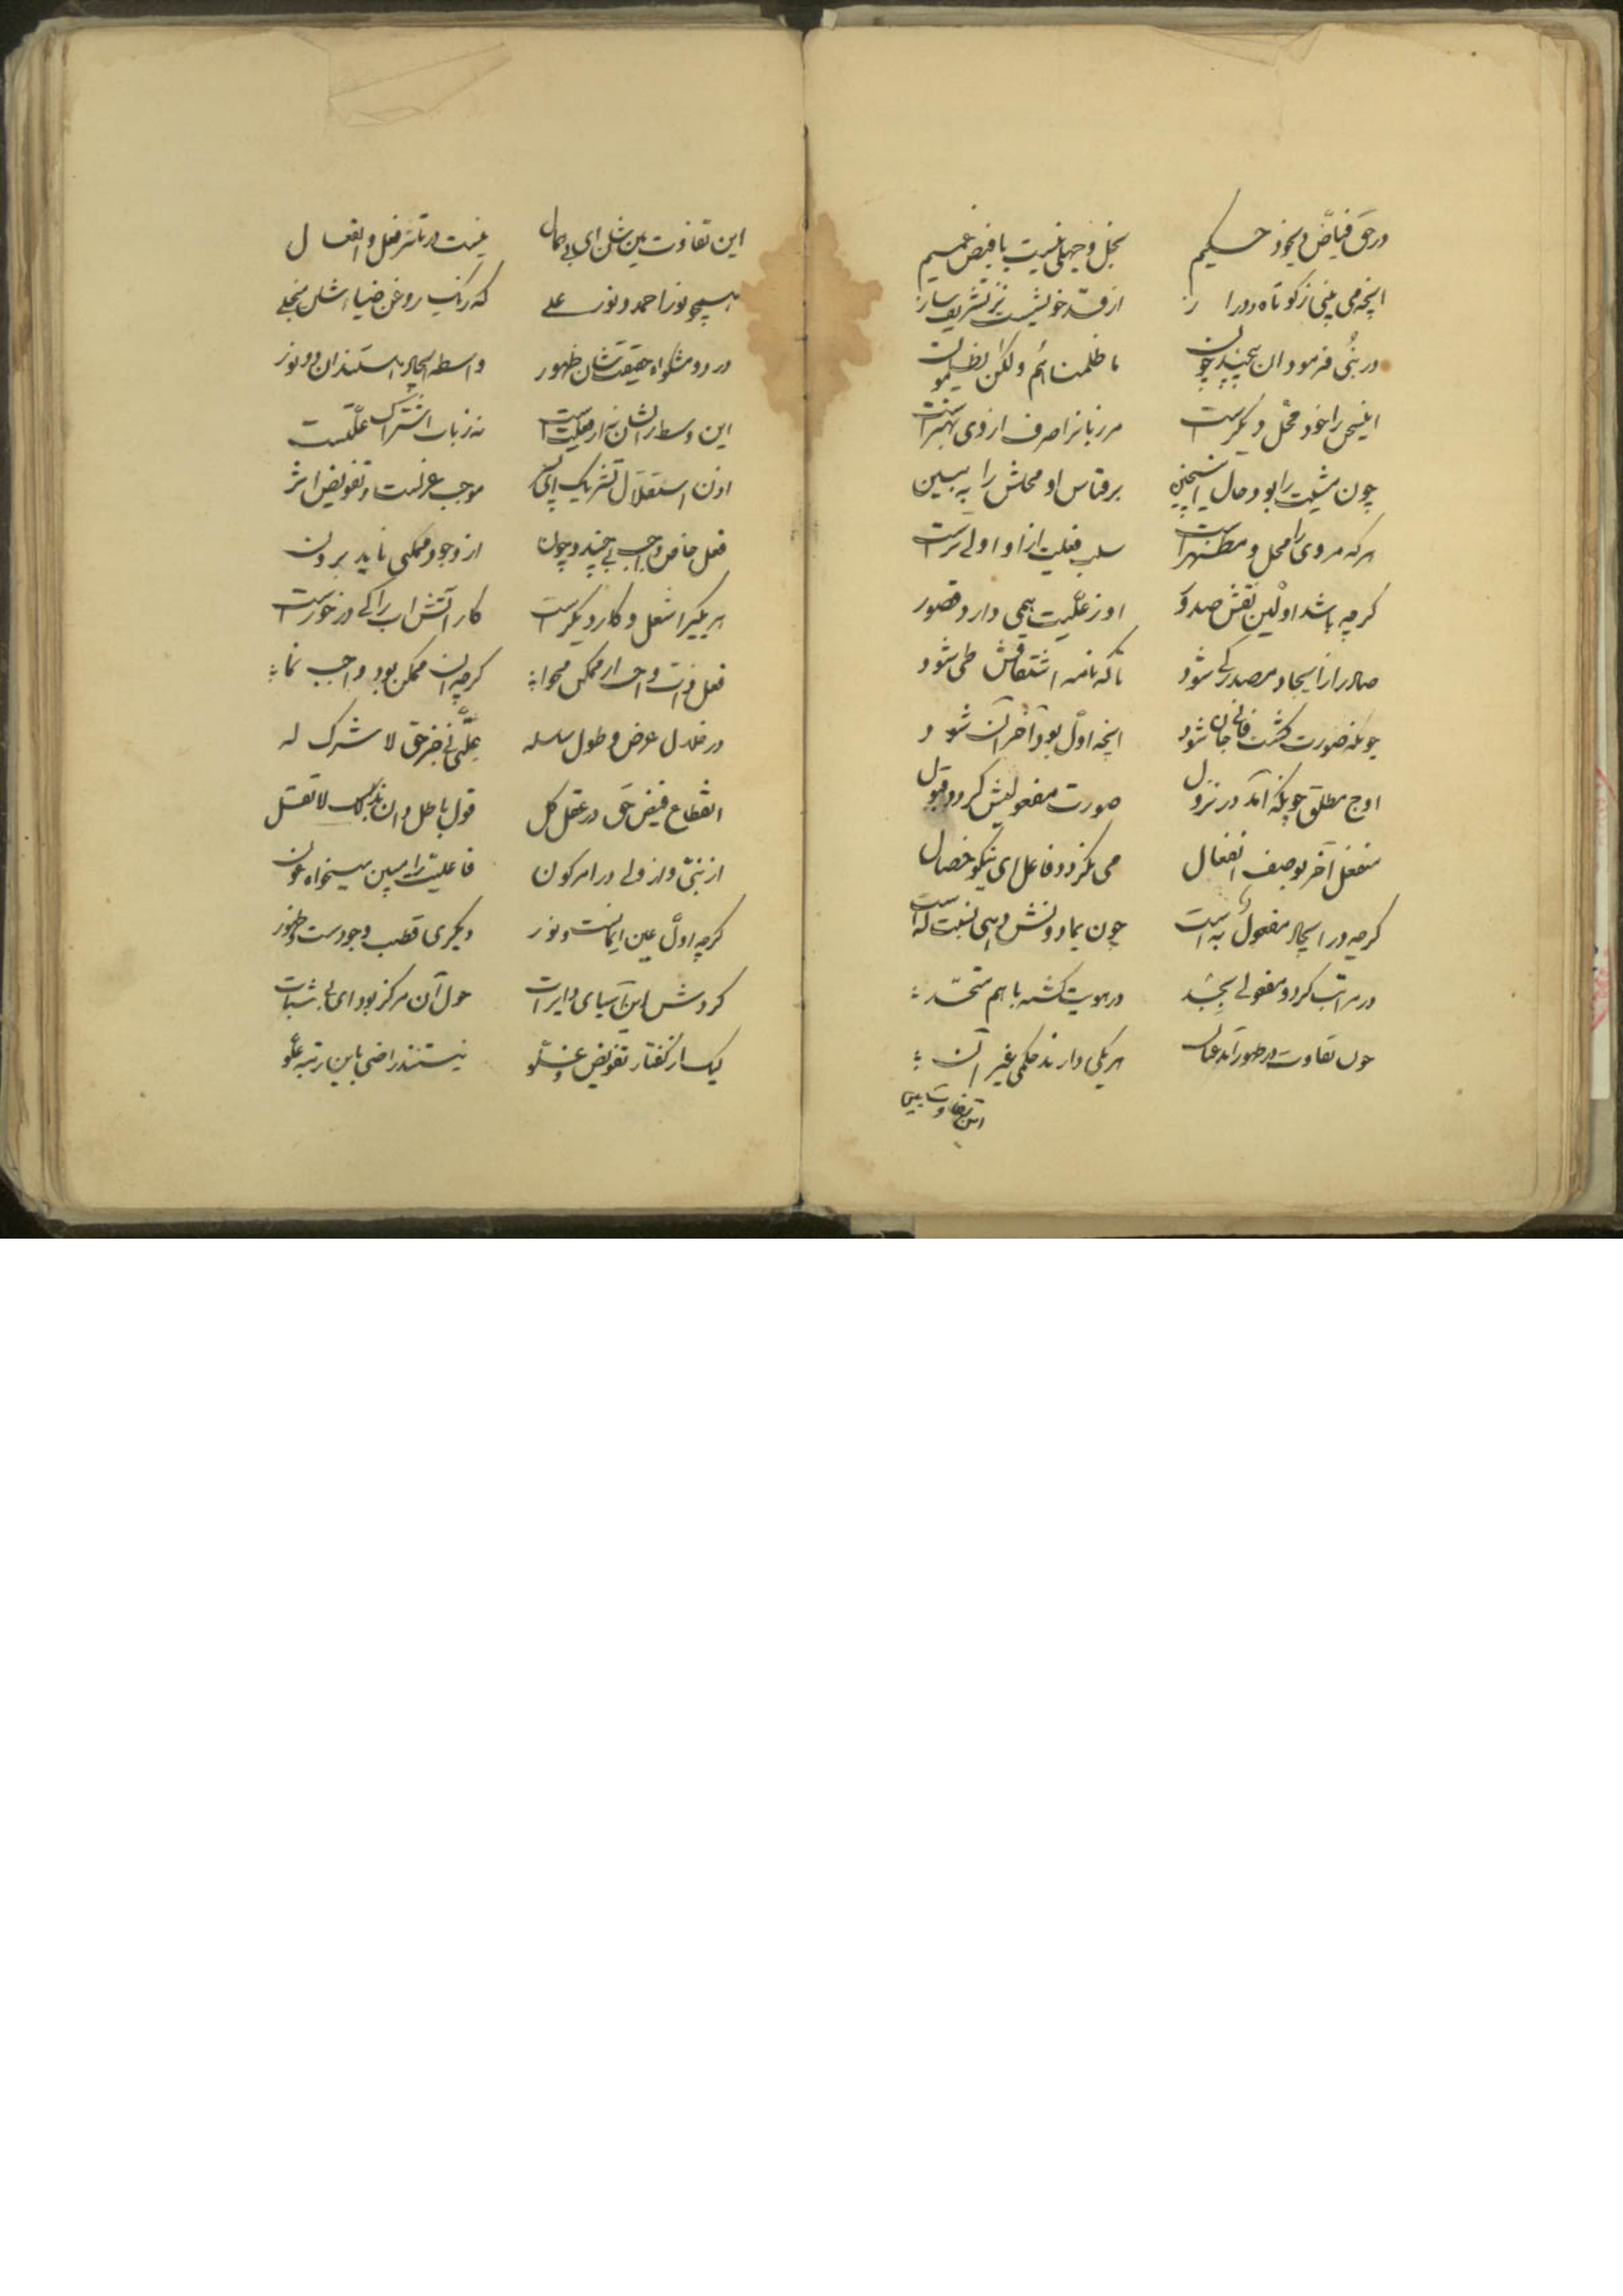 در حق فیاض و بیخود حکیم بخل و جهلی نیست با فیض عمیم
انچه می بینی ز کوتاه و دراز از قد خویشست نز تشریف ساز
در نبی فرمود ان بیچند و چون ما ظلمناهم ولکن یظلمون
این سخن را خود محل دیکرست مر زبانرا صرف ازوی بهترست
چون مشیت را بود حال اینچنین بر قیاس او محلش را ببین
هر که مر وی را محل و مظهرست سلب فعلیت ازو اولی ترست
کرچه باشد اولین نقش صدور او ز علیت همی دارد قصور
صادر از ایجاد مصدر کی شود تا که نامه اشتقاقش طی شود
چونکه صورت کشت فانی جان شود انچه اول بود آخر آن شود
اوج مطلق چونکه آمد در نزول صورت مفعولیش کردد قبول
منفعل آخر بوصف انفعال می نکردد فاعل ای نیکو خصال
کرچه در ایجاد مفعول به است چون
در مراتب کرد و مفعولی بجد در هویت کشته با هم متحد
چون تفاوت در ظهور آمد عیان هر یکی دارند حکمی غیر آن
این تفاوت بین
این تفاوت بین شان ای بی همال نیست در تاثیر فعل و انفعال
همچو نور احمد و نور علی که زیک روغن ضیاء شان منجلی
در دو مشکواه حقیقتشان ظهور واسطه ایجاد هستند ان دو نور
این وسط رایشان نه از فعلیت است نه ز باب اشتراک علتست
اذن استقلال تشریک ای پسر موجب عزلست و تفویض اثر
فعل خاص واجب بی چند و چون از وجود ممکنی ناید برون
هر یکیرا شغل و کار دیکرست کار آتش اب را کی در خورست
فعل ذات واجب از ممکن مخواه کرچه ان ممکن بود واجب نما
در خلال عرض و طول سلسله علتی نی جز حق لا شرک له
انقطاع فیض حق در عقل کل قول باطل دان بذلک لا تقل
از نبی و از ولی در امر کون فاعلیت را مبین میخواه عون
کرچه اول عین ایمانست و نور دیکری قطب وجودست و ظهور
کردش این آسیای دایرات حول آن مرکز بود ای بی ثبات
لیک از کفتار تفویض و غلو نیستند راضی باین رتبه علو